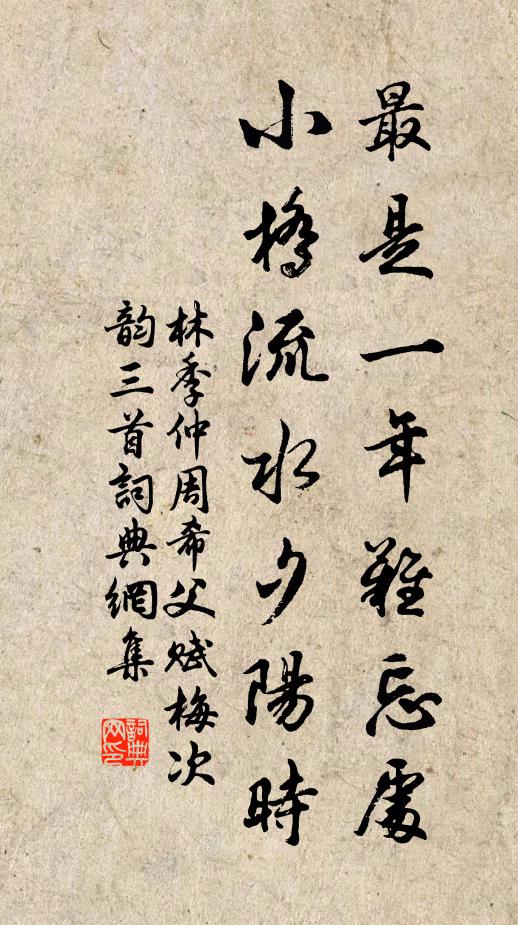 最是一年難忘處
小橋流水夕陽時
林季仲周希父赋梅次
韵三首詞典網集
詞典網印